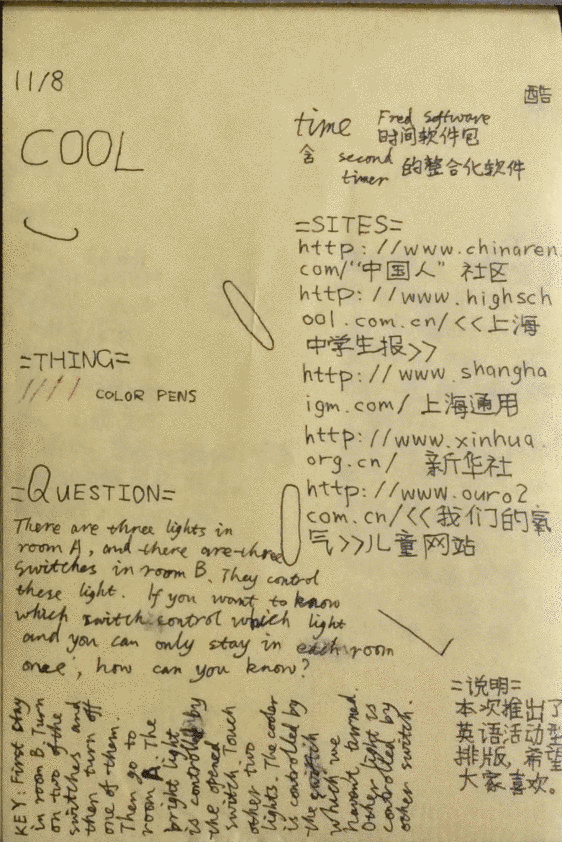 11/8
酷
COOL
time Fred Software
时间软件包
含 second timer 的整合化软件
=SITES=
http://www.chinaren.
com/“中国人”社区
http://www.highsch
ool.com.cn/<<上海
中学生报>>
http://www.shangha
igm.com/上海通用
http://www.xinhua.
org.cn/ 新华社
http://www.ouro2
com.cn/<<我们的氧
气>>儿童网站
=THING=
COLOR PENS
=QUESTION=
There are three lights in
room A, and there are three
switches in room B. They control
these light. If you want to know
which switch control which light
and you can only stay in each room
once, how can you know?
KEY: First stay
in room B. Turn
on two of the
switches and
then turn off
one of them.
Then go to
room A. The
bright light
is controlled by
the opened
switch. Touch
other two
lights. The cooler
is controlled by
the switch
which we
havn't turned.
Other light is
controlled by
other switch.
=说明=
本次推出了
英语活动型
排版,希望
大家喜欢。